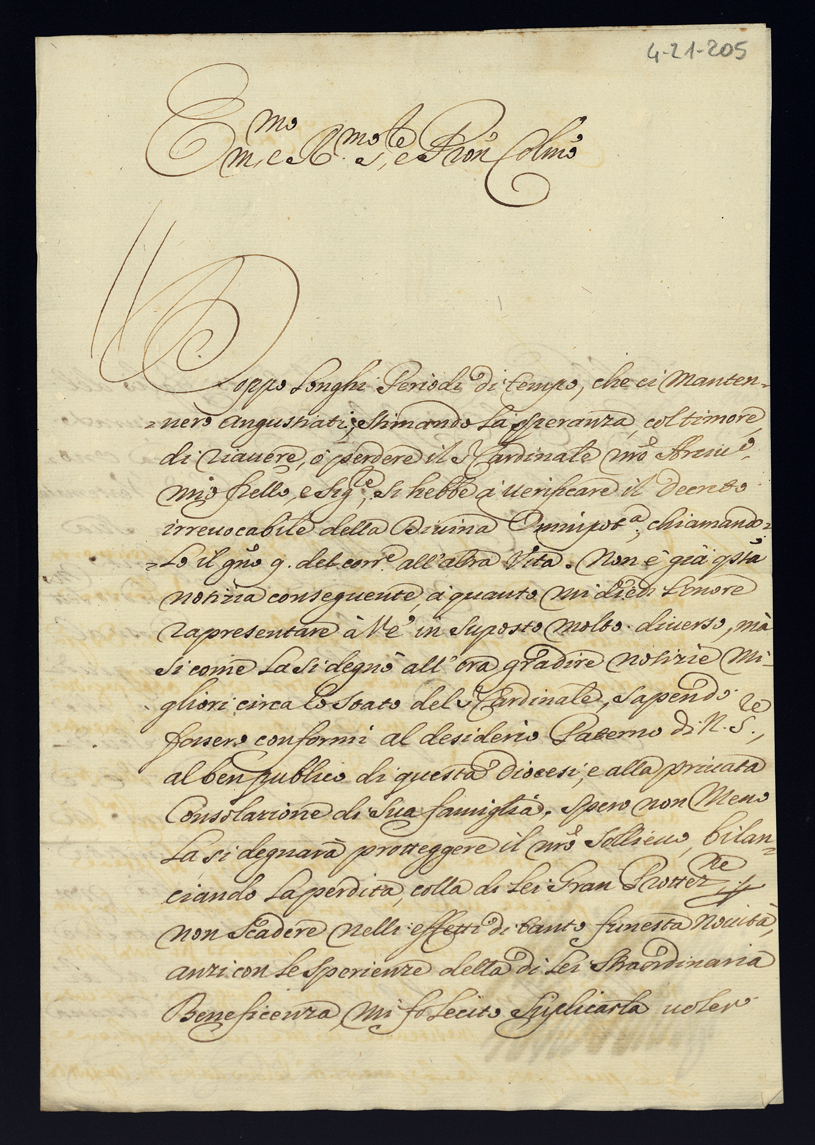 4-21-205
Em.mo e R.mo S.re e Pron Colmo
Doppo Longhi Periodi di tempo, che ci Manten=
=nero angustiati, stimando La speranza, col timore
di riavere, ò perdere il S.r Cardinale nrõ Arciv.o,
mio frello, e Sig.re, si hebbe à verificare il Decreto
irrevocabile della Divina Omnipot.a, chiamando=
=Lo il gno 9. del corr.e all'altra Vita. Non è già qsta
notizia conseguente, à quanto mi diedi Lonore
rapresentare à V.E. in suposto molto diverso, mà
si come La si degnò all'ora gradire notizie Mi=
gliori circa Lo stato del S.r Cardinale, sapendo
fossero conformi al desiderio Paterno di N. S.re,
al ben publico di questa Diocesi, e alla privata
Consolazione di Sua famiglia. Spero non Meno
La si degnarà protteggere il nrõ Sollievo, bilan=
ciando La perdita, colla di Lei Gran Prottez.ne
non Scadere nelli effetti di tanto funesta Novità,
anzi con Le sperienze della di Lei straordinaria
Beneficenza, mi fo Lecito Suplicarla voler